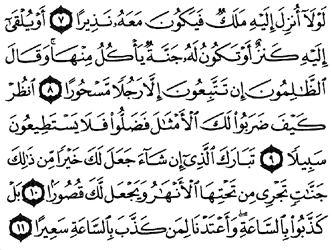 لَوْلَآ أُنزِلَ إِلَيْهِ مَلَكٌ فَيَكُونَ مَعَهُۥ نَذِيرًا ٧ أَوْ يُلْقَىٰٓ
إِلَيْهِ كَنزٌ أَوْ تَكُونُ لَهُۥ جَنَّةٌ يَأْكُلُ مِنْهَا ۚ وَقَالَ
ٱلظَّٰلِمُونَ إِن تَتَّبِعُونَ إِلَّا رَجُلًا مَّسْحُورًا ٨ ٱنظُرْ
كَيْفَ ضَرَبُوا۟ لَكَ ٱلْأَمْثَٰلَ فَضَلُّوا۟ فَلَا يَسْتَطِيعُونَ
سَبِيلًا ٩ تَبَارَكَ ٱلَّذِىٓ إِن شَآءَ جَعَلَ لَكَ خَيْرًا مِّن ذَٰلِكَ
جَنَّٰتٍ تَجْرِى مِن تَحْتِهَا ٱلْأَنْهَٰرُ وَيَجْعَل لَّكَ قُصُورًا ١٠ بَلْ
كَذَّبُوا۟ بِٱلسَّاعَةِ ۖ وَأَعْتَدْنَا لِمَن كَذَّبَ بِٱلسَّاعَةِ سَعِيرًا ١١